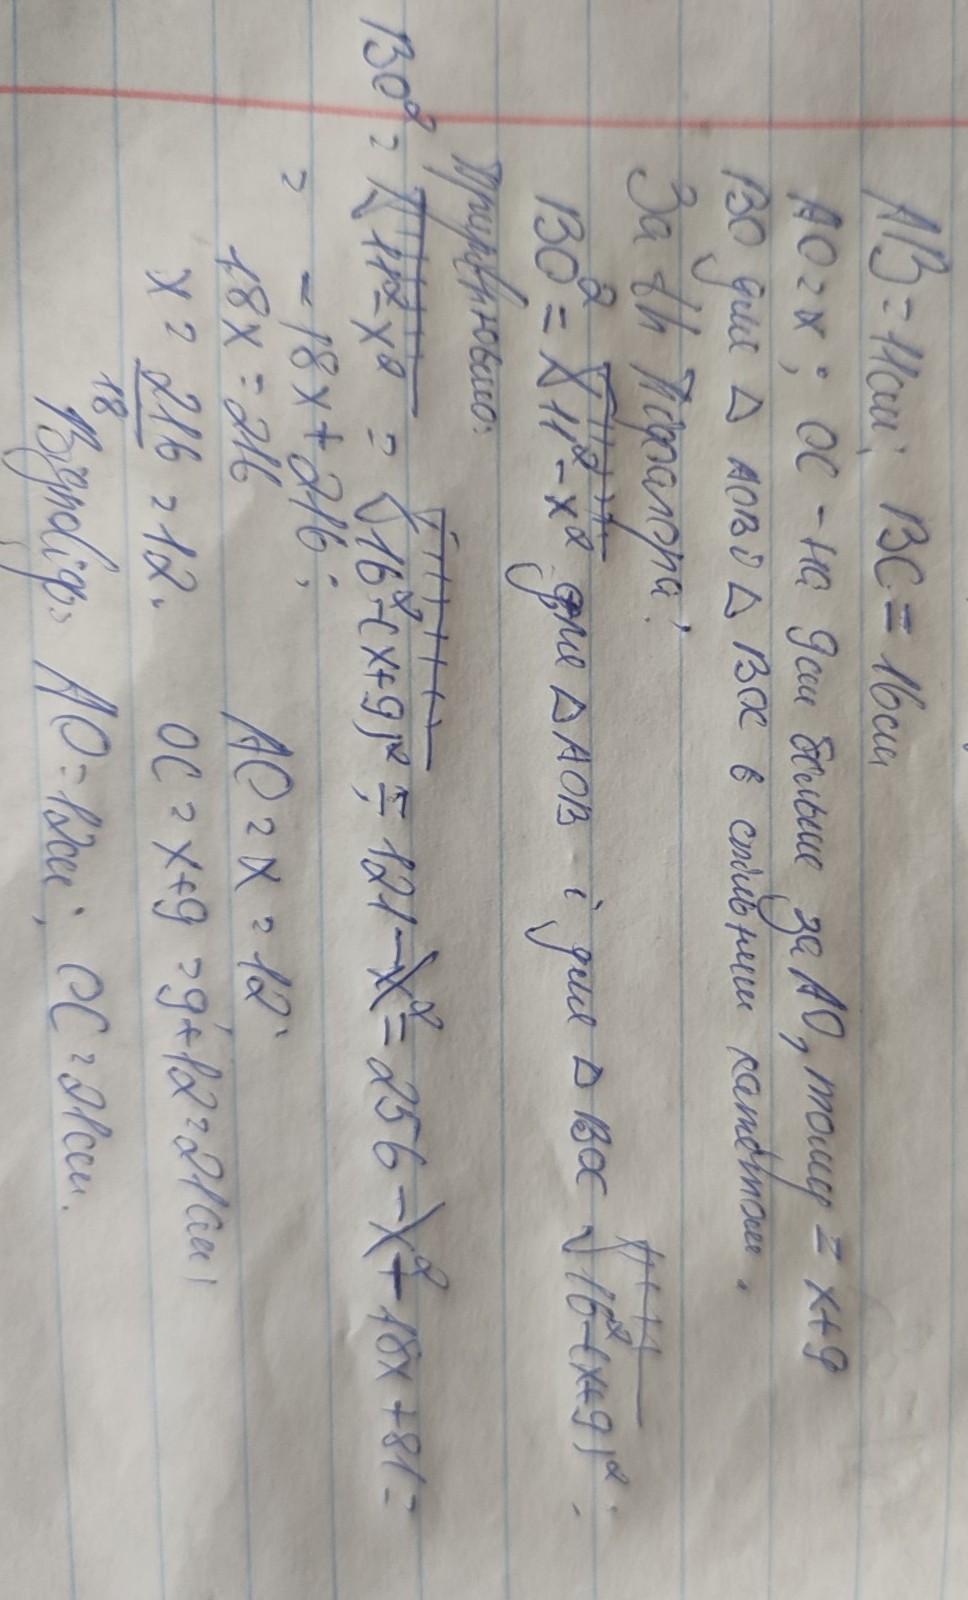 AB = 11см; BC = 16см
AO = x; OC - на 9см больше за AO, тому = x+9
BO для △ AOB і △ BOC в спільним катетом.
За th Піфагора:
BO² = √11² - x² для △ AOB і для △ BOC √16² - (x+9)².
Прирівнюємо:
BO² = √11² - x² = √16² - (x+9)² = 121 - x² = 256 - x² + 18x + 81 =
= - 18x + 216;
18x = 216
AO = x = 12.
x = 216/18 = 12.
OC = x+9 = 9+12 = 21см;
Відповідь: AO = 12см; OC = 21см.